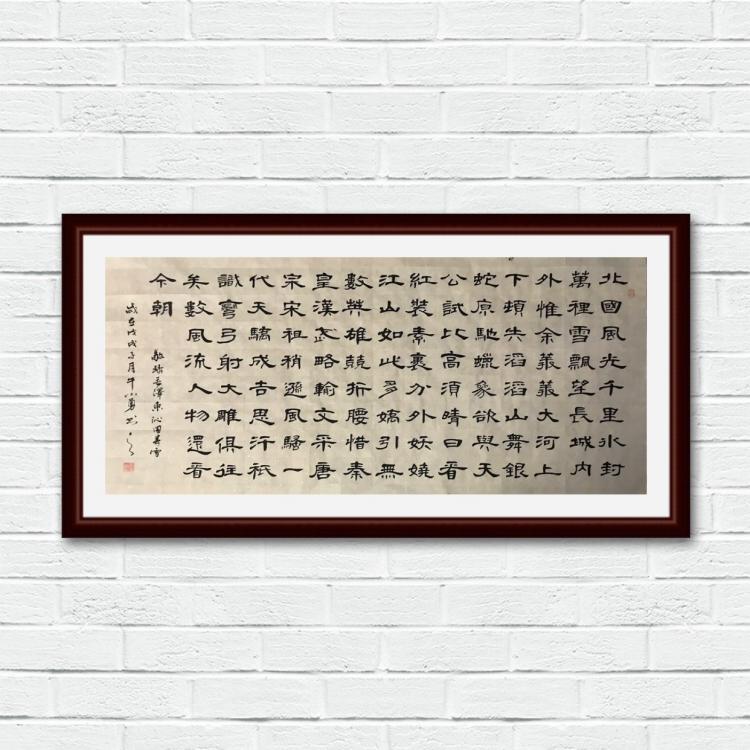 北國風光千里冰封
萬裡雪飄望長城内
外惟余義義大河上
下頓失滔滔山舞銀
蛇原馳蠟象欲與天
公試比高須晴日看
紅裝素裹分外妖嬈
江山如此多嬌引無
數英雄競折腰惜秦
皇漢武略輸文采唐
宗宋祖稍遜風騷一
代天驕成吉思汗祇
識彎弓射大雕俱往
矣數風流人物還看
今朝
敬錄毛澤東沁園春雪
歲在戊戌子月牛小勇書